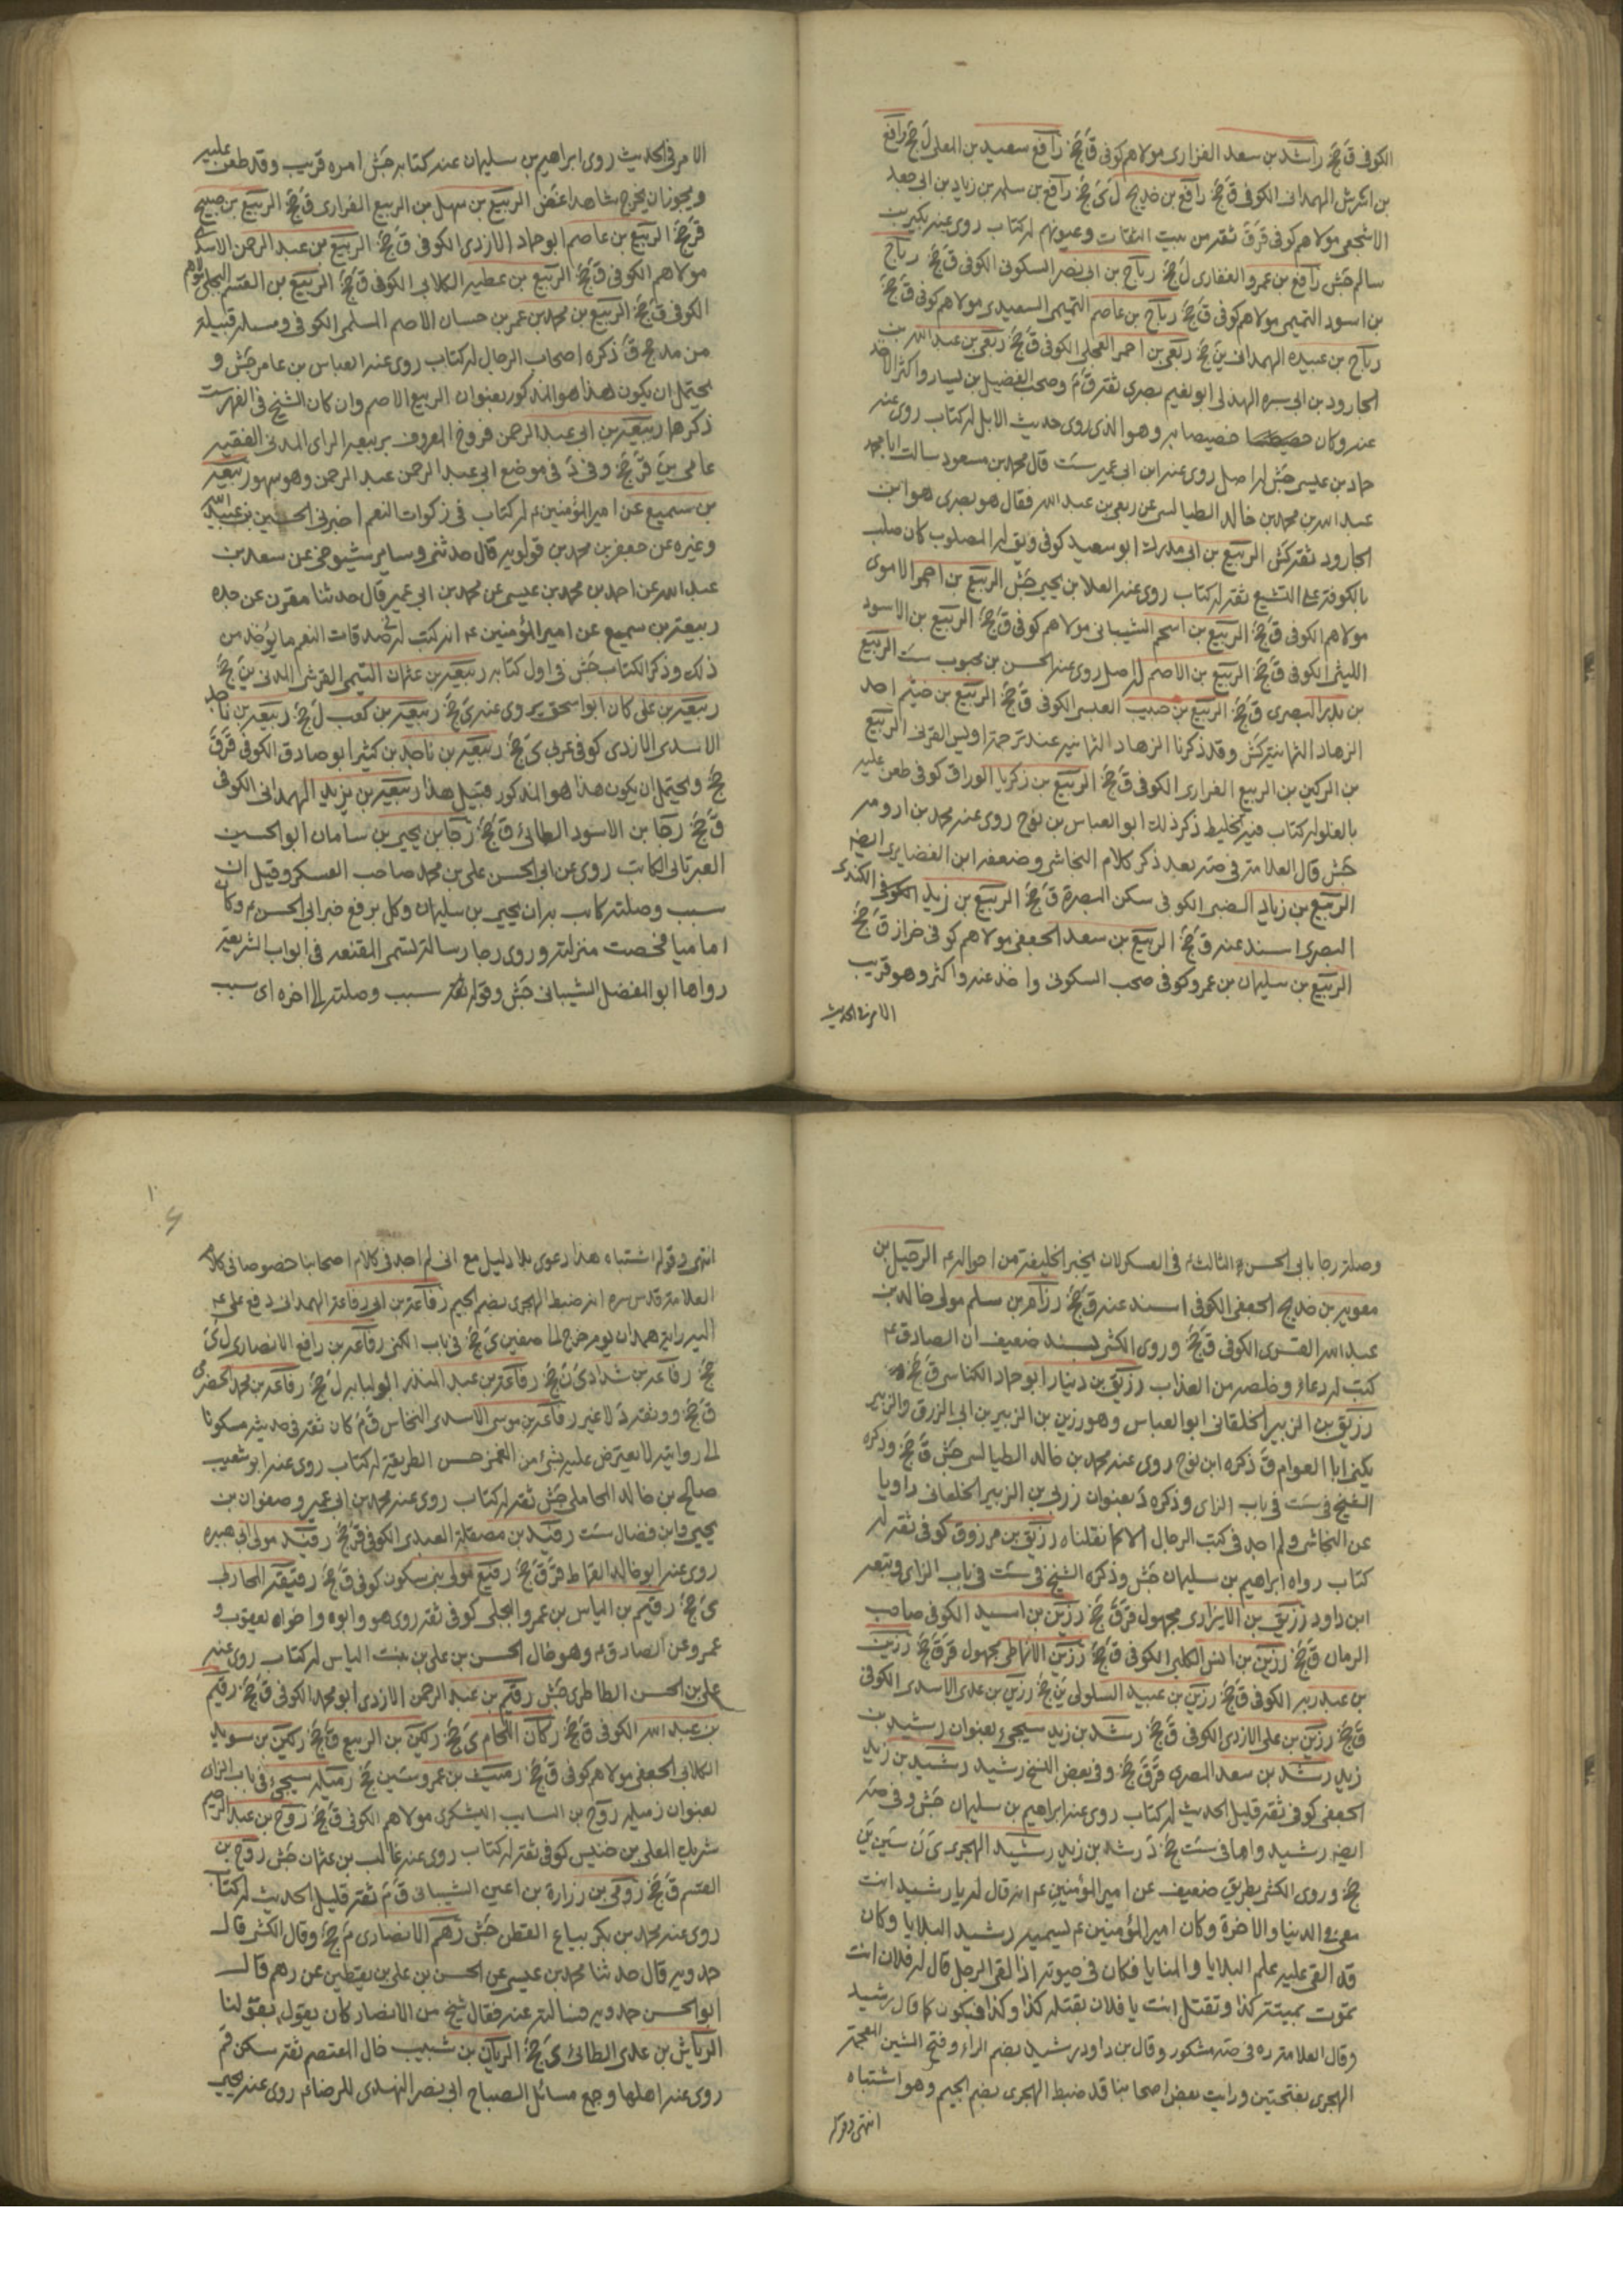 الكوفي ق جخ راشد بن سعد الفزاري مولاهم كوفي ق جخ رافع سعيد بن المعلى ل جخ رافع
بن اشرش الهمداني الكوفي ق جخ رافع بن خديج ل ي جخ رافع بن سلمه بن زياد بن ابي جعد
الاشجعي مولاهم كوفي قر ق ثقه من بيت الثقات وعيونهم له كتاب روى عنه بكر بن
سالم جش رافع بن عمرو الغفاري ل جخ رباح بن ابي نصر السكوني الكوفي ق جخ رباح
بن اسود التميمي مولاهم كوفي ق جخ رباح بن عاصم التميمي السعيدي مولاهم كوفي ق جخ
رباح بن عبيده الهمداني ين جخ ربعي بن احمر العجلي الكوفي ق جخ ربعي بن عبد الله بن
الجارود بن ابي سبره الهذلي ابو نعيم بصري ثقه ق م وصحب الفضيل بن يسار واكثر الاخذ
عنه وكان خصيصا به وهو الذي روى حديث الابل له كتاب روى عنه
حماد بن عيسى جش له اصل روى عنه ابن ابي عمير ست قال محمد بن مسعود سالت ابا محمد
عبد الله بن محمد بن خالد الطيالسي عن ربعي بن عبد الله فقال هو بصري هو ابن
الجارود ثقه كش الربيع بن ابي مدرك ابو سعيد كوفي ويق له المصلوب كان صلب
بالكوفه على التشيع ثقه له كتاب روى عنه العلا بن يحيى جش الربيع بن احمر الاموي
مولاهم الكوفي ق جخ الربيع بن اسحم الشيباني مولاهم كوفي ق جخ الربيع بن الاسود
الليثي الكوفي ق جخ الربيع بن الاصم له اصل روى عنه الحسن بن محبوب ست الربيع
بن بدر البصري ق جخ الربيع بن حبيب العبسي الكوفي ق جخ الربيع بن خيثم احد
الزهاد الثمانيه كش وقد ذكرنا الزهاد الثمانيه عند ترجمه اويس القرني الربيع
بن الركين بن الربيع الفزاري الكوفي ق جخ الربيع بن زكريا الوراق كوفي طعن عليه
بالغلو له كتاب فيه تخليط ذكر ذلك ابو العباس بن نوح روى عنه محمد بن اورمه
جش قال العلامه في صه بعد ذكر كلام النجاشي وضعفه ابن الغضايري ايضه
الربيع بن زياد الضبي الكوفي سكن البصرة ق جخ الربيع بن زيد الكندي
البصري اسند عنه ق جخ الربيع بن سعد الجعفي مولاهم كوفي خزاز ق جخ
الربيع بن سليمان بن عمرو كوفي صحب السكوني واخذ عنه واكثر وهو قريب
الامر في الحديث
الامر في الحديث روى ابراهيم بن سليمان عنه كتابه جش امره قريب وقد طعن عليه
ويجوز ان يخرج شاهدا غض الربيع بن سهل بن الربيع الفزاري ق جخ الربيع بن صبيح
قر جخ الربيع بن عاصم ابو حماد الازدي الكوفي ق جخ الربيع بن عبد الرحمن الاسدي
مولاهم الكوفي ق جخ الربيع بن عطيه الكلابي الكوفي ق جخ الربيع بن القسم البجلي مولاهم
الكوفي ق جخ الربيع بن محمد بن عمر بن حسان الاصم المسلمي الكوفي ومسله قبيلة
من مذحج ق ذكره اصحاب الرجال له كتاب روى عنه العباس بن عامر جش و
يحتمل ان يكون هذا هو المذكور بعنوان الربيع الاصم وان كان الشيخ في الفهرست
ذكرهما ربيعه بن ابي عبد الرحمن فروخ المعروف بربيعه الراى المدني الفقيه
عامي ين قر جخ وفي د في موضع ابي عبد الرحمن عبد الرحمن وهو سهو ربيعه
بن سميع عن امير المؤمنين ع له كتاب في زكوات النعم اخبرني الحسين بن عبيد الله
وغيره عن جعفر بن محمد بن قولويه قال حدثني وساير شيوخي عن سعد بن
عبد الله عن احمد بن محمد بن عيسى عن محمد بن ابي عمير قال حدثنا مقرن عن جده
ربيعة بن سميع عن امير المؤمنين عم انه كتب له في صدقات النعم ما يؤخذ من
ذلك وذكر الكتاب جش في اول كتابه ربيعه بن عثمان التيمي القرشي المدني ين جخ
ربيعه بن على كان ابو اسحق يروى عنه ي جخ ربيعه بن كعب ل جخ ربيعه بن ناجد
الاسدي الازدي كوفي عربي ي جخ ربيعه بن ناجد بن كثير ابو صادق الكوفي قر ق
جخ ويحتمل ان يكون هذا هو المذكور قبيل هذا ربيعه بن يزيد الهمداني الكوفي
ق جخ رجا بن الاسود الطائي ق جخ رجا بن يحيى بن سامان ابو الحسين
العبرتائي الكاتب روى عن ابي الحسن علي بن محمد صاحب العسكر وقيل ان
سبب وصلته كانت به ان يحيى بن سامان وكل برفع خبر ابي الحسن ع وكان
اماميا فخصت منزلته وروى رجا رسالة تسمى المقنعه في ابواب الشريعه
رواها ابو المفضل الشيباني جش وقوله سبب وصلته الى اخره اى سبب
وصلة رجا بابي الحسن الثالث ع في العسكر لان يخبر الخليفة من احواله ع الرحيل بن
معويه بن خديج الجعفي الكوفي اسند عنه ق جخ رزام بن مسلم مولى خالد بن
عبد الله القسري الكوفي ق جخ وروى الكشي بسند ضعيف ان الصادق ع
كتب له دعاء وخلصه من العذاب رزيق بن دينار ابو حماد الكناسي ق جخ
رزيق بن الزبير الخلقاني ابو العباس وهو رزين بن الزبير بن ابي الزرق والزبير
يكنى ابا العوام ق ذكره ابن نوح روى عنه محمد بن خالد الطيالسي جش ق جخ وذكره
الشيخ في ست في باب الزاى وذكره د بعنوان زربى بن الزبير الخلقاني راويا
عن النجاشي ولم اجد في كتب الرجال الا كما نقلناه رزيق بن مرزوق كوفي ثقه له
كتاب رواه ابراهيم بن سليمان جش وذكره الشيخ في ست في باب الزاى وتبعه
ابن داود رزيق بن الابزاري مجهول قر ق جخ رزين بن اسيد الكوفي صاحب
الرمان ق جخ رزين بن انس الكلبي الكوفي ق جخ رزين الانماطي مجهول قر ق جخ رزين
بن عبد ربه الكوفي ق جخ رزين بن عبيد السلولي ين جخ رزين بن عدي الاسدي الكوفي
ق جخ رزين بن علي الازدي الكوفي ق جخ رشد بن زيد سيجيء بعنوان رشيد بن
زيد رشد بن سعد المصري قر ق جخ وفي بعض النسخ رشيد رشيد بن زيد
الجعفي كوفي ثقه قليل الحديث له كتاب روى عنه ابراهيم بن سليمان جش وفي صه
ايضه رشيد واما في ست جخ د رشد بن زيد رشيد الهجري ي ن سين ين
جخ وروى الكشي بطريق ضعيف عن امير المؤمنين عم انه قال له يا رشيد انت
معي في الدنيا والاخرة وكان امير المؤمنين عم يسميه رشيد البلايا وكان
قد القى عليه علم البلايا والمنايا فكان في حيوته اذا لقى الرجل قال له فلان انت
تموت بميتة كذا وتقتل انت يا فلان بقتله كذا وكذا فيكون كما قال رشيد
وقال العلامه ره في صه مشكور وقال بن داود رشيد بضم الراء وفتح الشين المعجمة
الهجري بفتحتين ورايت بعض اصحابنا قد ضبط الهجري بضم الجيم وهو اشتباه
انتهى وقوله
انتهى وقوله اشتباه هذا دعوى بلا دليل مع اني لم اجد في كلام اصحابنا خصوصا في كلام
العلامة قدس سره انه ضبط الهجري بضم الجيم رفاعة بن ابي رفاعة الهمداني دفع على عم
اليه راية همدان يوم خرج الى صفين ي جخ في باب الكنى رفاعه بن رافع الانصاري ل ي
جخ رفاعه بن شداد ي ن جخ رفاعة بن عبد المنذر ابو لبابه ل جخ رفاعه بن محمد الحضرمي
ق جخ ووثقه د لا غير رفاعه بن موسى الاسدي النخاس ق م كان ثقه في حديثه مسكونا
الى روايته لا يعترض عليه بشيء من الغمز حسن الطريقة له كتاب روى عنه ابو شعيب
صالح بن خالد المحاملي جش ثقه له كتاب روى عنه محمد بن ابي عمير وصفوان بن
يحيى وابن فضال ست رقبه بن مصقله العبدي الكوفي قر جخ رفيد مولى ابي هبيره
روى عنه ابو خالد القماط قر ق جخ رفيع مولى بني سكون كوفي ق جخ رقيقه المحاربي
ي جخ رقيم بن الياس بن عمرو البجلي كوفي ثقه روى هو وابوه واخواه يعقوب و
عمرو عن الصادق ع وهو خال الحسن بن علي بن بنت الياس له كتاب روى عنه
علي بن الحسن الطاطري جش رقيم بن عبد الرحمن الازدي ابو محمد الكوفي ق جخ رقيم
بن عبد الله الكوفي ق جخ ركان اللحام ي جخ ركين بن الربيع ق جخ ركين بن سويد
الكلابي الجعفي مولاهم كوفي ق جخ رميت بن عمرو سين جخ رميله سيجيء في باب الزاى
بعنوان زميله روح بن السايب اليشكري مولاهم الكوفي ق جخ روح بن عبد الرحيم
شريك المعلى بن خنيس كوفي ثقه له كتاب روى عنه غالب بن عثمان جش روح بن
القسم ق جخ رومي بن زرارة بن اعين الشيباني ق م ثقه قليل الحديث له كتاب
روى عنه محمد بن بكر بياع القطن جش رهم الانصاري م جخ وقال الكشي قال
حدويه قال حدثنا محمد بن عيسى عن الحسن بن علي بن يقطين عن رهم قال
ابو الحسن حدويه فسالته عنه فقال شيخ من الانصار كان يقول بقولنا
الرياش بن عدي الطائي ي جخ الريان بن شبيب خال المعتصم ثقه سكن قم
روى عنه اهلها وجمع مسائل الصباح ابي نصر الهندي للرضا عم روى عنه يحيى